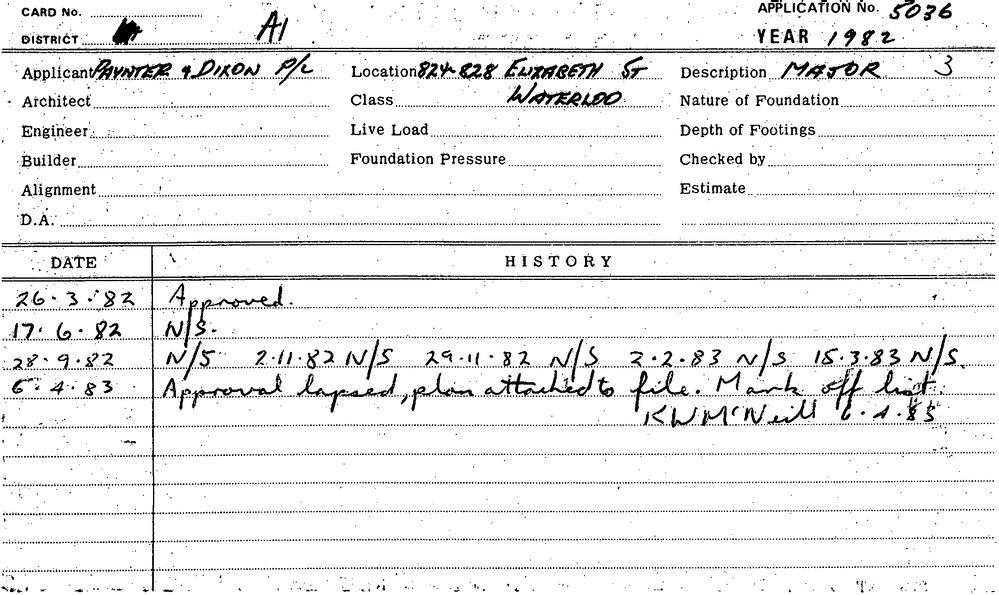 CARD No.
APPLICATION No. 5036
DISTRICT A1
YEAR 1982
Applicant PAYNTER & DIXON P/L Location 824-828 ELIZABETH ST Description MAJOR 3
Architect Class WATERLOO Nature of Foundation
Engineer Live Load Depth of Footings
Builder Foundation Pressure Checked by
Alignment Estimate
D.A.
DATE HISTORY
26.3.82 Approved.
17.6.82 N/S.
28.9.82 N/S 2.11.82 N/S 29.11.82 N/S 2.2.83 N/S 15.3.83 N/S.
6.4.83 Approval lapsed, plan attached to file. Mark off list.
KWMcNeill 6.4.83